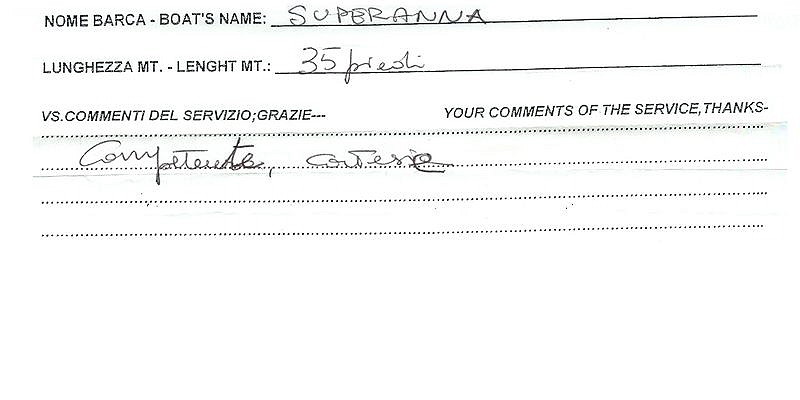 NOME BARCA - BOAT'S NAME: SUPERANNA
LUNGHEZZA MT. - LENGHT MT.: 35 piedi
VS.COMMENTI DEL SERVIZIO;GRAZIE--- YOUR COMMENTS OF THE SERVICE,THANKS-
Competente, cortesia